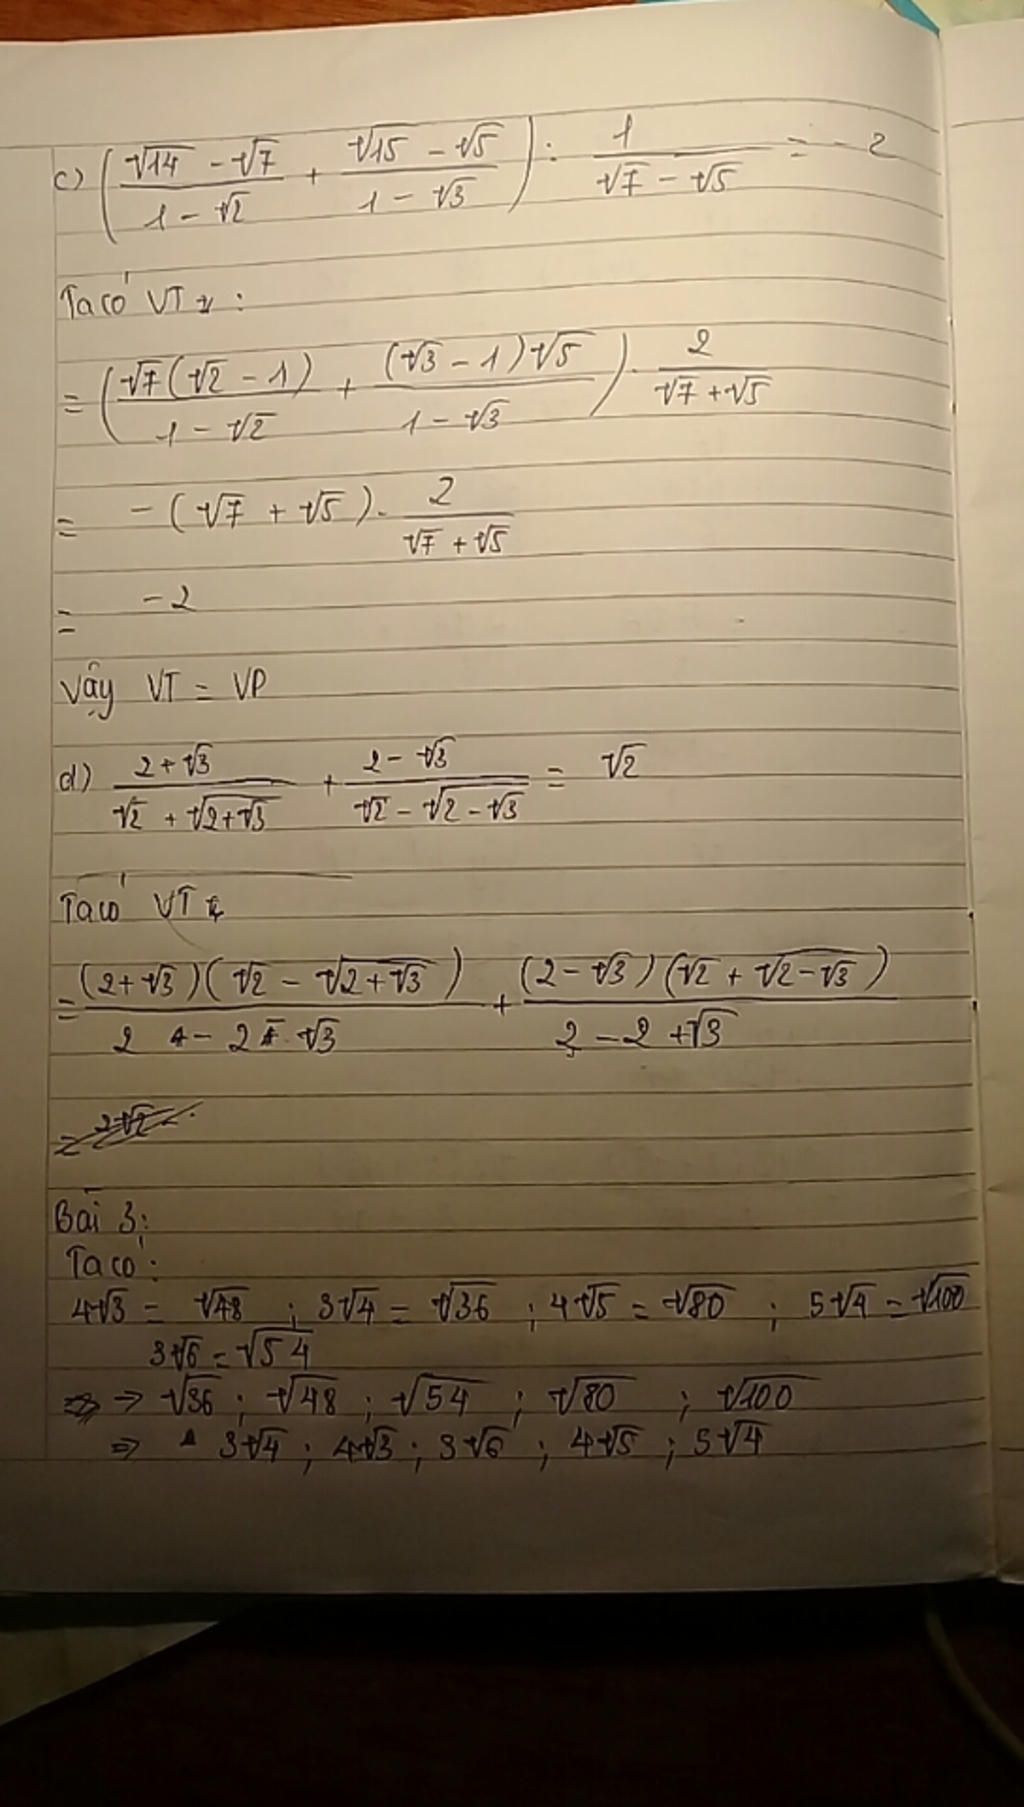 c) (√14 - √7 / 1 - √2 + √15 - √5 / 1 - √3) : 1 / √7 - √5 = -2
Ta có VT :
= (√7(√2 - 1) / 1 - √2 + (√3 - 1)√5 / 1 - √3) . 2 / √7 + √5
= -(√7 + √5) . 2 / √7 + √5
= -2
Vậy VT = VP
d) 2 + √3 / √2 + √(2+√3) + 2 - √3 / √2 - √(2 - √3) = √2
Ta có VT
= (2+√3)(√2 - √(2+√3)) / 2 - 2 - √3 + (2-√3)(√2 + √(2-√3)) / 2 - 2 + √3
Bài 3:
Ta có:
4√3 = √48 ; 3√4 = √36 ; 4√5 = √80 ; 5√4 = √100
3√6 = √54
⇒ √36 ; √48 ; √54 ; √80 ; √100
⇒ 3√4 ; 4√3 ; 3√6 ; 4√5 ; 5√4